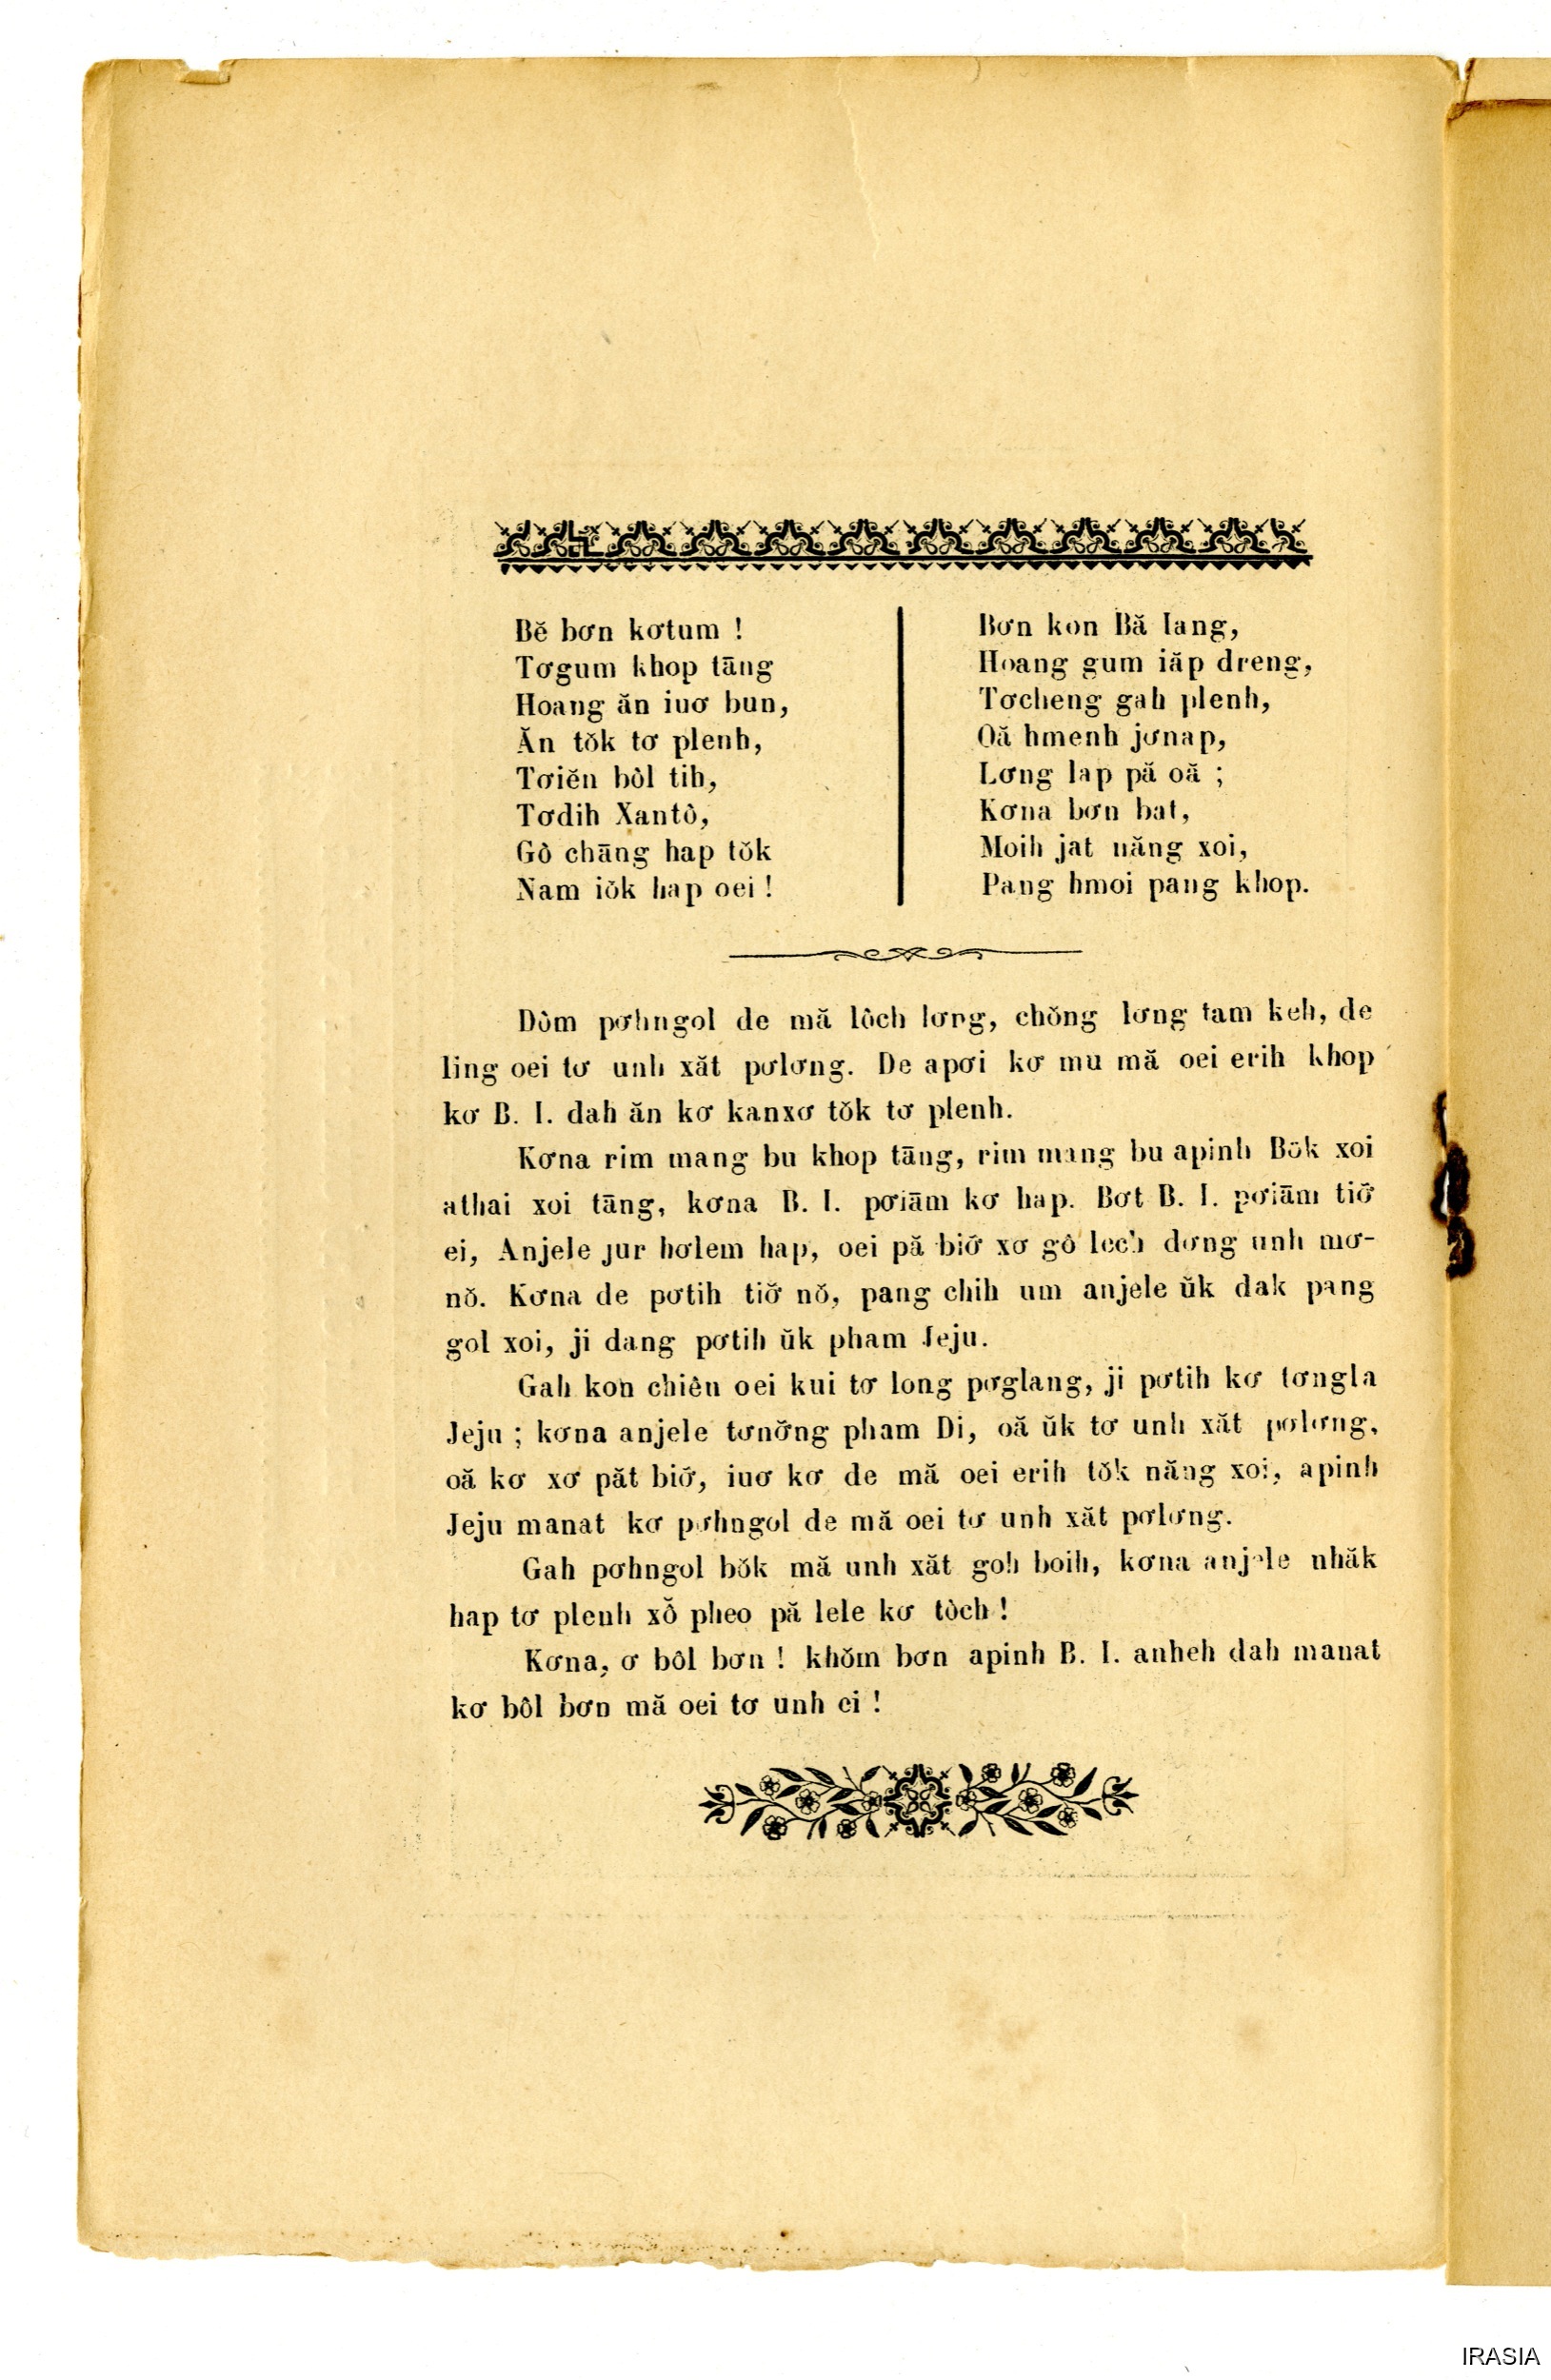 Bĕ bơn kơtum !
Tơgum khop tāng
Hoang ăn iuơ bun,
Ăn tŏk tơ plenh,
Tơiĕn bôl tih,
Tơdih Xantô,
Gô chāng hap tŏk
Nam iŏk hap oei !
Bơn kon Bă Iang,
Hoang gum iăp dreng,
Tơcheng gah plenh,
Oă hmenh jơnap,
Lơng lap pă oă ;
Kơna bơn bat,
Moih jat năng xoi,
Pang hmoi pang khop.
Dôm pơhngol de mă lôch lơng, chŏng lơng tam keh, de
ling oei tơ unh xăt pơlơng. De apơi kơ mu mă oei erih khop
kơ B. I. dah ăn kơ kanxơ tŏk tơ plenh.
Kơna rim mang bu khop tāng, rim mang bu apinh Bŏk xoi
athai xoi tāng, kơna B. I. pơiām kơ hap. Bơt B. I. pơiām tiơ̆
ei, Anjele jur hơlem hap, oei pă biơ̆ xơ gô lech dơng unh mơ-
nŏ. Kơna de pơtih tiơ̆ nŏ, pang chih um anjele ŭk dak pang
gol xoi, ji dang pơtih ŭk pham Jeju.
Gah kon chiên oei kui tơ long pơglang, ji pơtih kơ tơngla
Jeju ; kơna anjele tơnơ̆ng pham Di, oă ŭk tơ unh xăt pơlơng,
oă kơ xơ păt biơ̆, iuơ kơ de mă oei erih tŏk năng xoi, apinh
Jeju manat kơ pơhngol de mă oei tơ unh xăt pơlơng.
Gah pơhngol bŏk mă unh xăt goh boih, kơna anjele nhăk
hap tơ plenh xŏ̆ pheo pă lele kơ tôch !
Kơna, ơ bôl bơn ! khŏm bơn apinh B. I. anheh dah manat
kơ bôl bơn mă oei tơ unh ei !
IRASIA